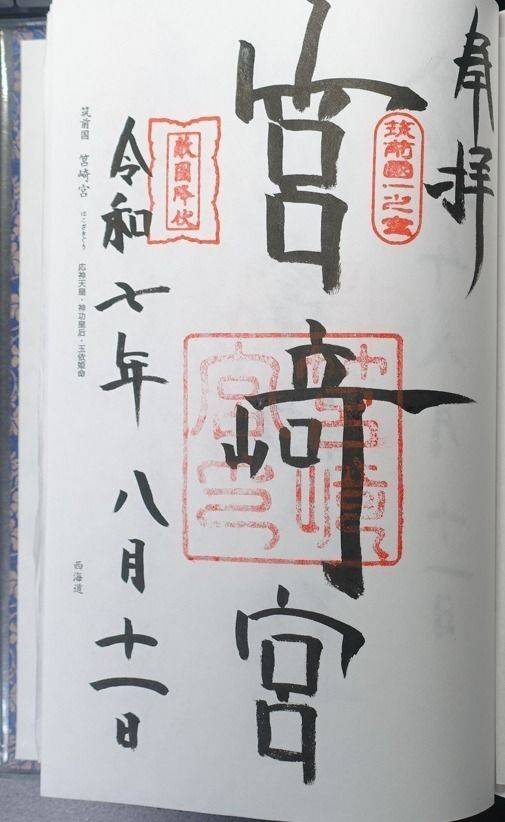 奉拝
筑前國一之宮
筥崎宮
筥崎宮印
敵國降伏
令和七年八月十一日
筑前国 筥崎宮 はこざきぐう 応神天皇・神功皇后・玉依姫命
西海道